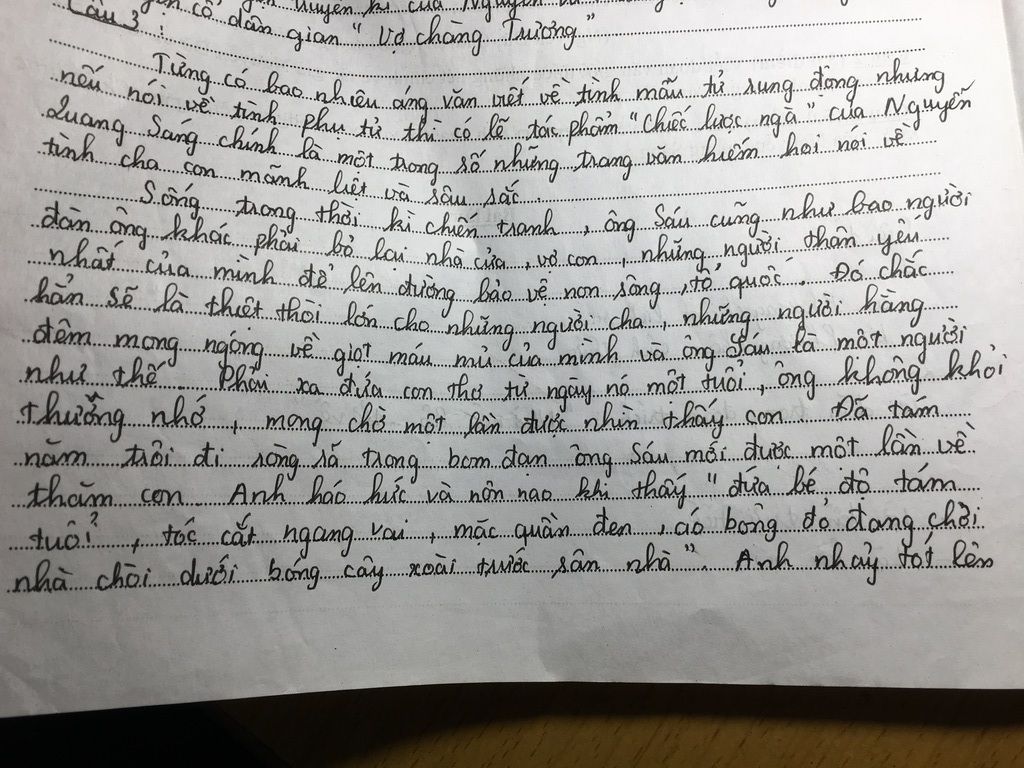 truyền kì của Nguyễn
cổ dân gian " Vợ chàng Trương "
Câu 3 :
Từng có bao nhiêu áng văn viết về tình mẫu tử rung động nhưng
nếu nói về tình phụ tử thì có lẽ tác phẩm " Chiếc lược ngà " của Nguyễn
Quang Sáng chính là một trong số những trang văn hiếm hoi nói về
tình cha con mãnh liệt và sâu sắc .
Sống trong thời kì chiến tranh , ông Sáu cũng như bao người
đàn ông khác phải bỏ lại nhà cửa , vợ con , những người thân yêu
nhất của mình để lên đường bảo vệ non sông , tổ quốc . Đó chắc
hẳn sẽ là thiệt thòi lớn cho những người cha , những người hàng
đêm mong ngóng về giọt máu mủ của mình và ông Sáu là một người
như thế . Phải xa đứa con thơ từ ngày nó một tuổi , ông không khỏi
thương nhớ , mong chờ một lần được nhìn thấy con . Đã tám
năm trôi đi ròng rã trong bom đạn ông Sáu mới được một lần về
thăm con . Anh háo hức và nôn nao khi thấy " đứa bé độ tám
tuổi , tóc cắt ngang vai , mặc quần đen , áo bông đỏ đang chơi
nhà chòi dưới bóng cây xoài trước sân nhà " . Anh nhảy tót lên